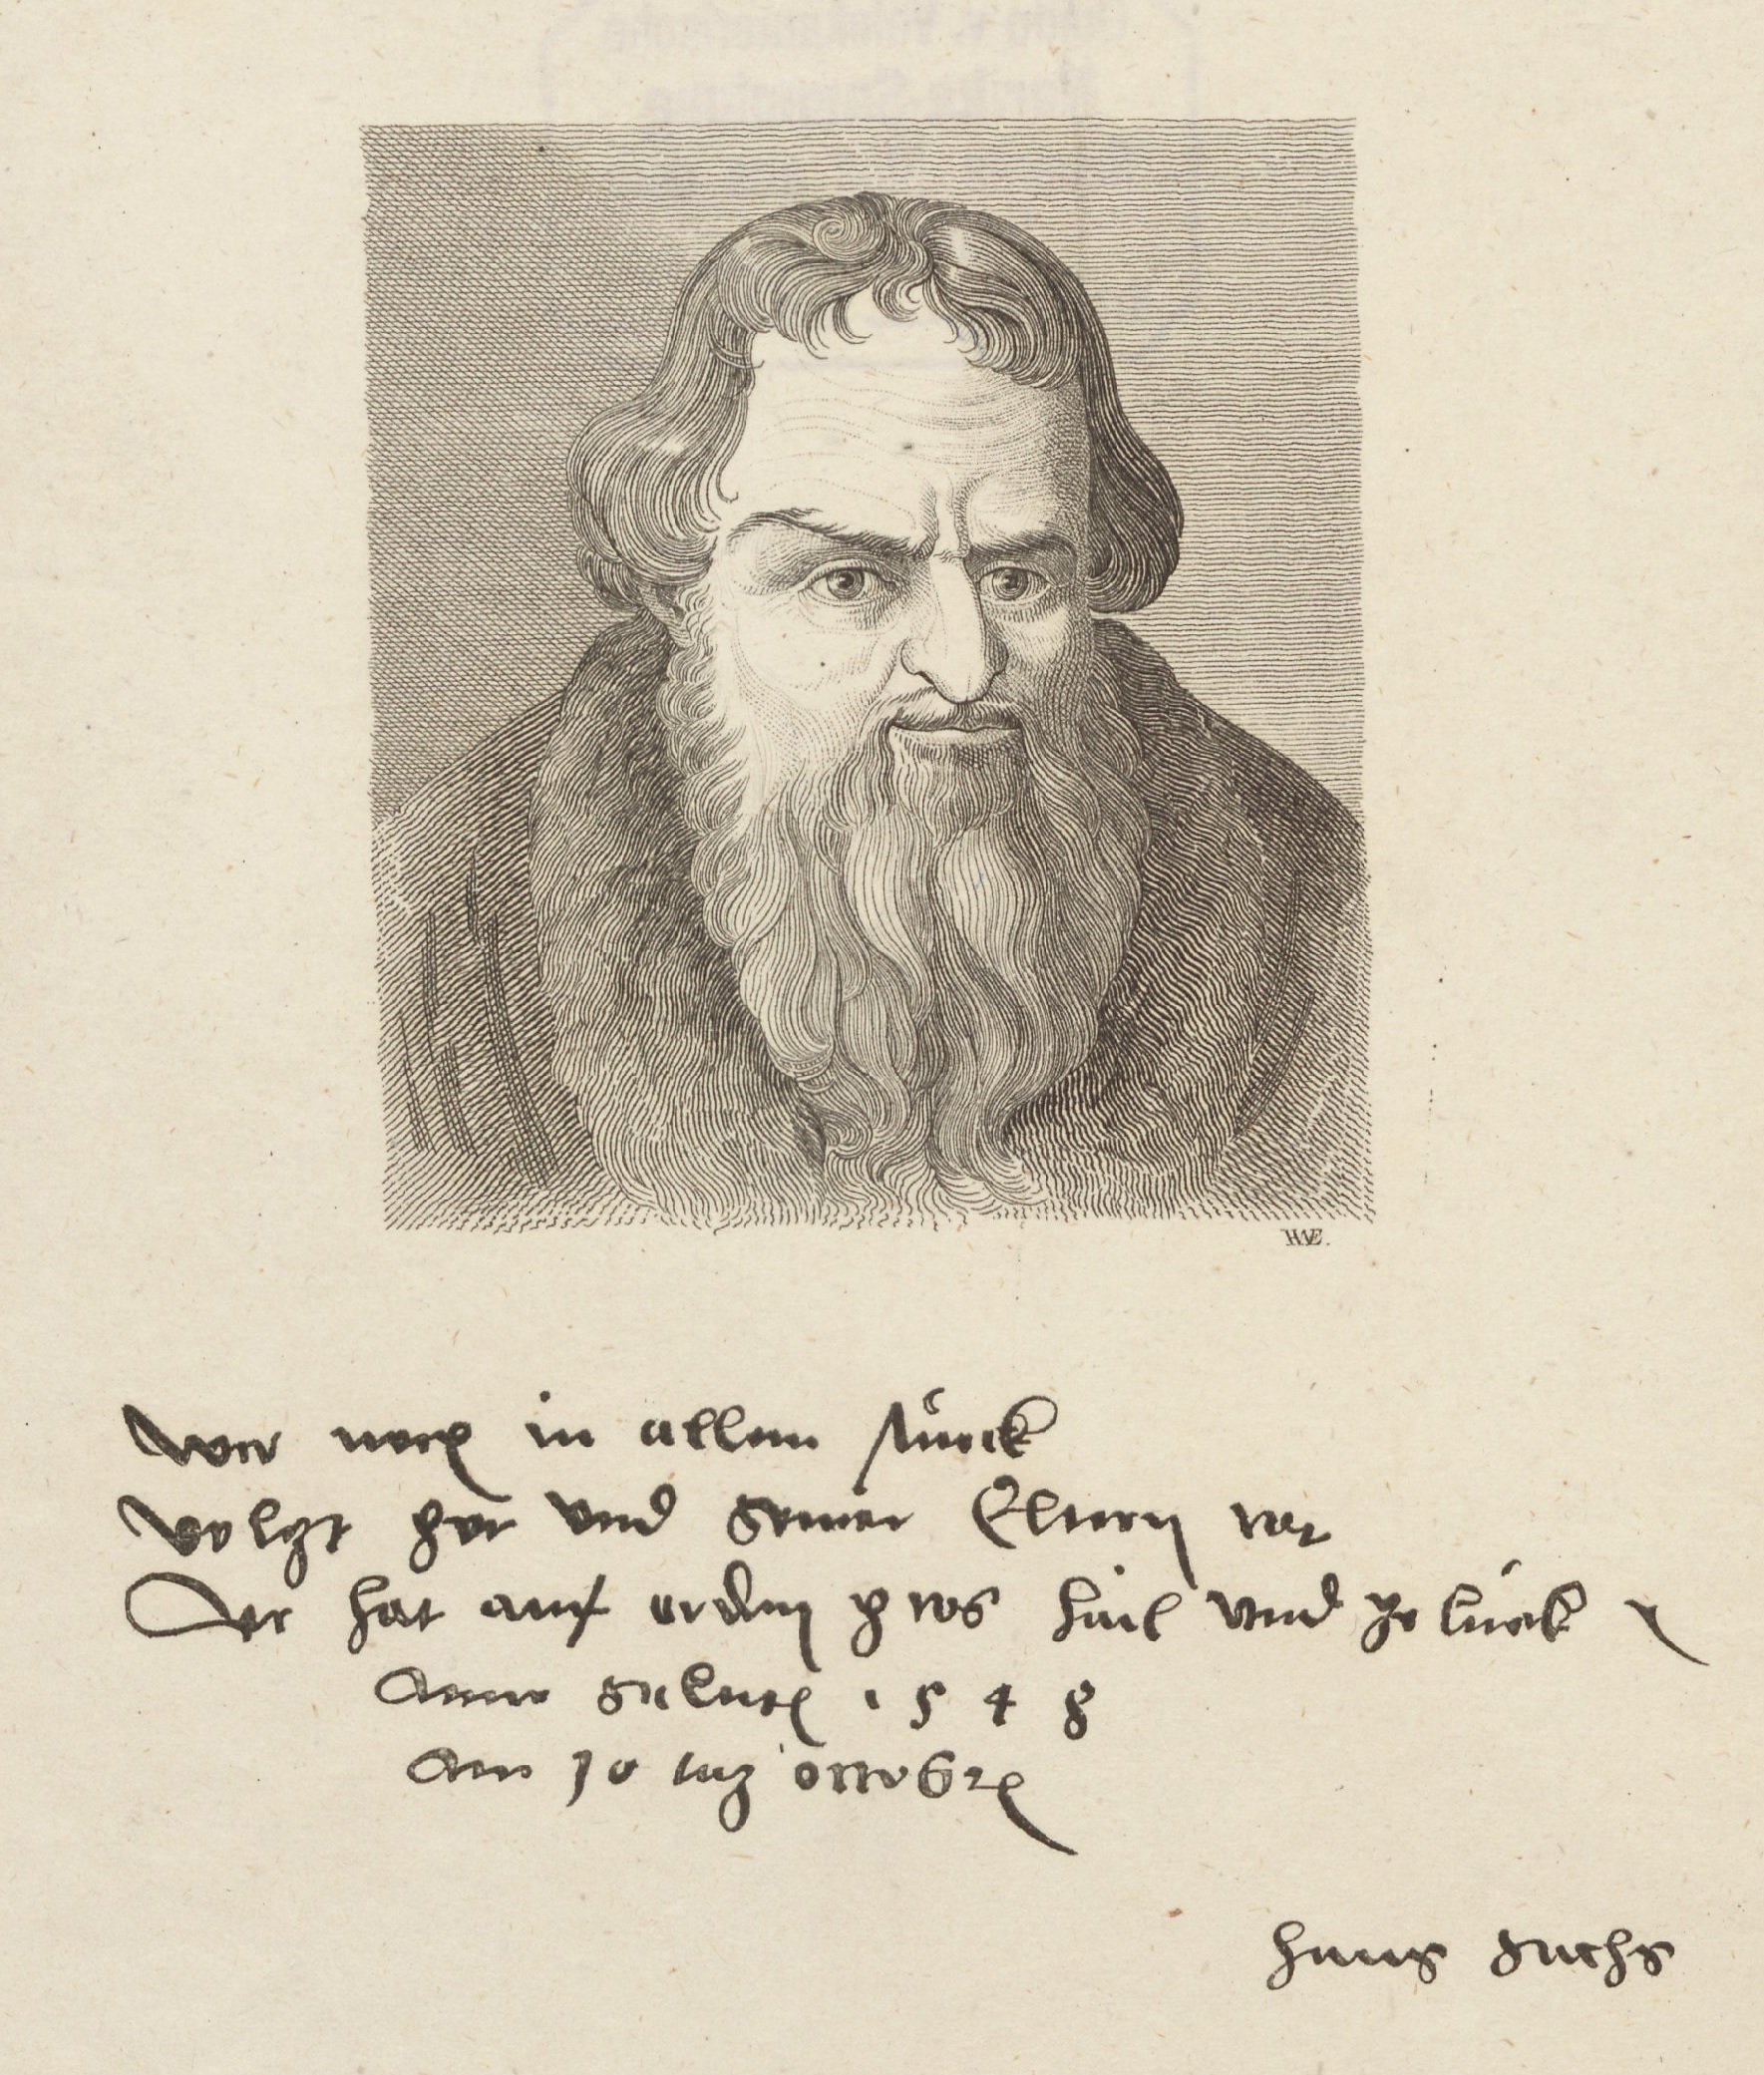 HVE.
wer noch in allem stueck
volgt got und seiner Eltern rat
Der hat auf erden gros hail und gelueck
Anno Salutis 1548
Am 10 tag octobris
hans Sachs